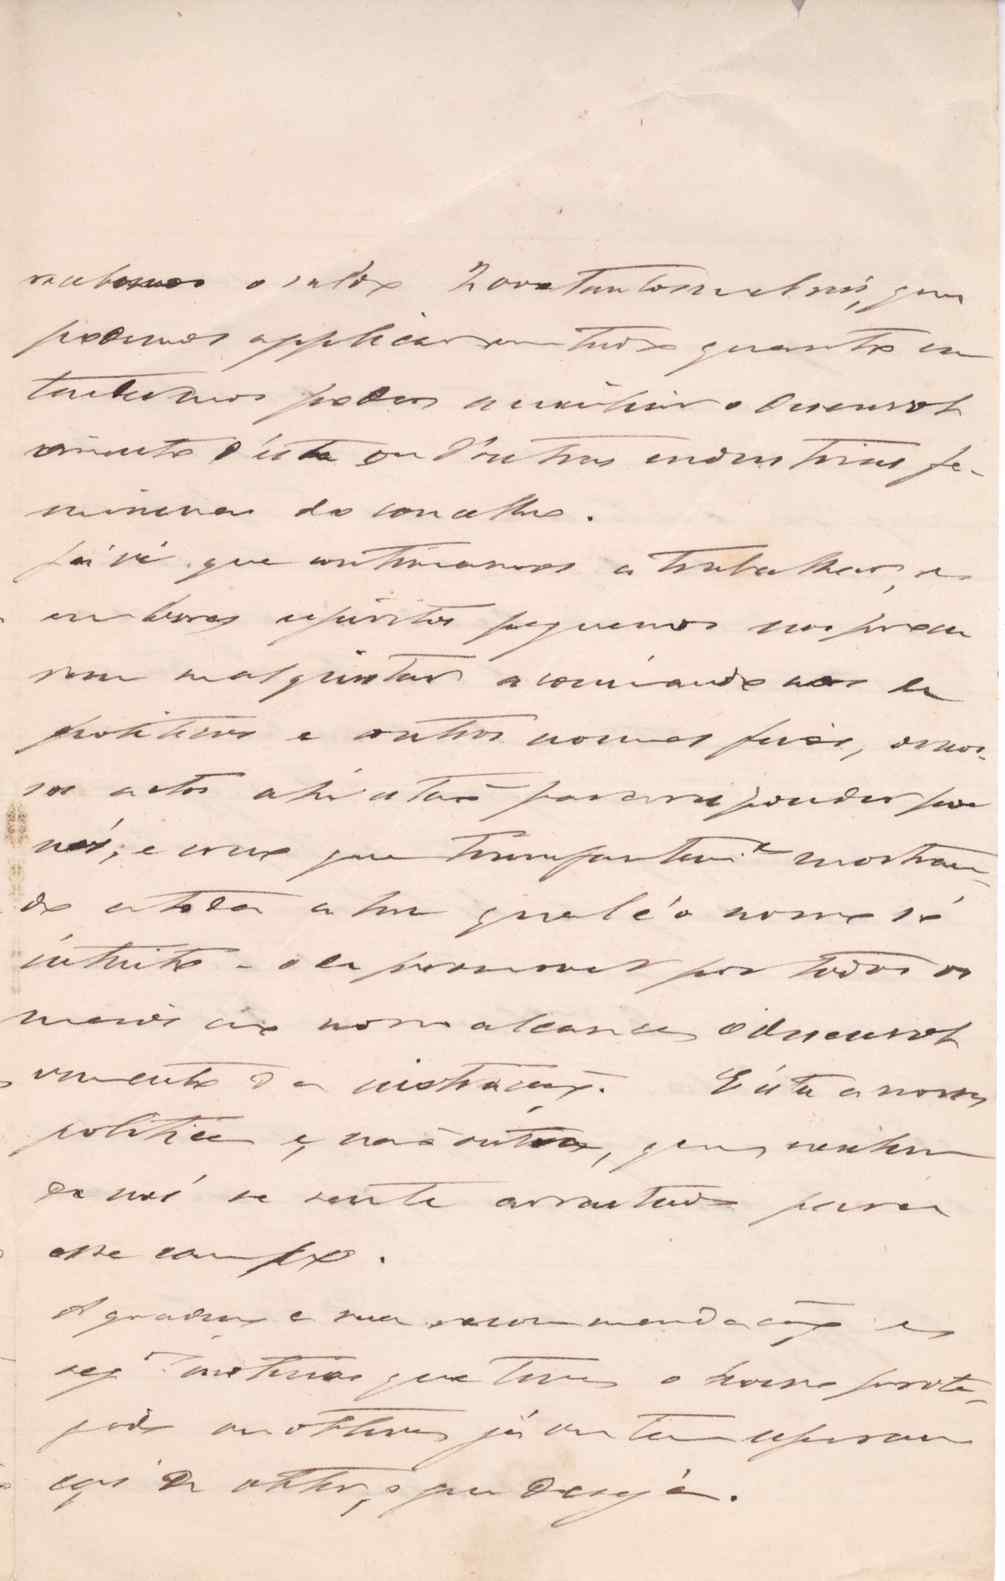 recebemos o saldo que
podemos applicar em tudo quanto en
tendermos poder auxiliar o desenvol
vimento d'esta ou d'outras industrias fe-
mininas do concelho.
Já vê que continuamos a trabalhar, e
embora espiritos pequenos nos procu
rem malquistar acoimando nos de
politicos e outros nomes feios, os nos-
sos actos ahi estão para responder por
nós; e creio que mostran-
do a toda a luz qual é o nosso só
intuito - o de promover por todos os
meios ao nosso alcance o desenvol
vimento da instrucção. É esta a nossa
politica e, não outra, que nenhum
de nós se sente arrastado para
esse campo.
Agradeço a sua recommendação e
seg.do noticias que tive o nosso prote-
gido ou obteve já ou tem esperan
ças de obter, o que deseja.